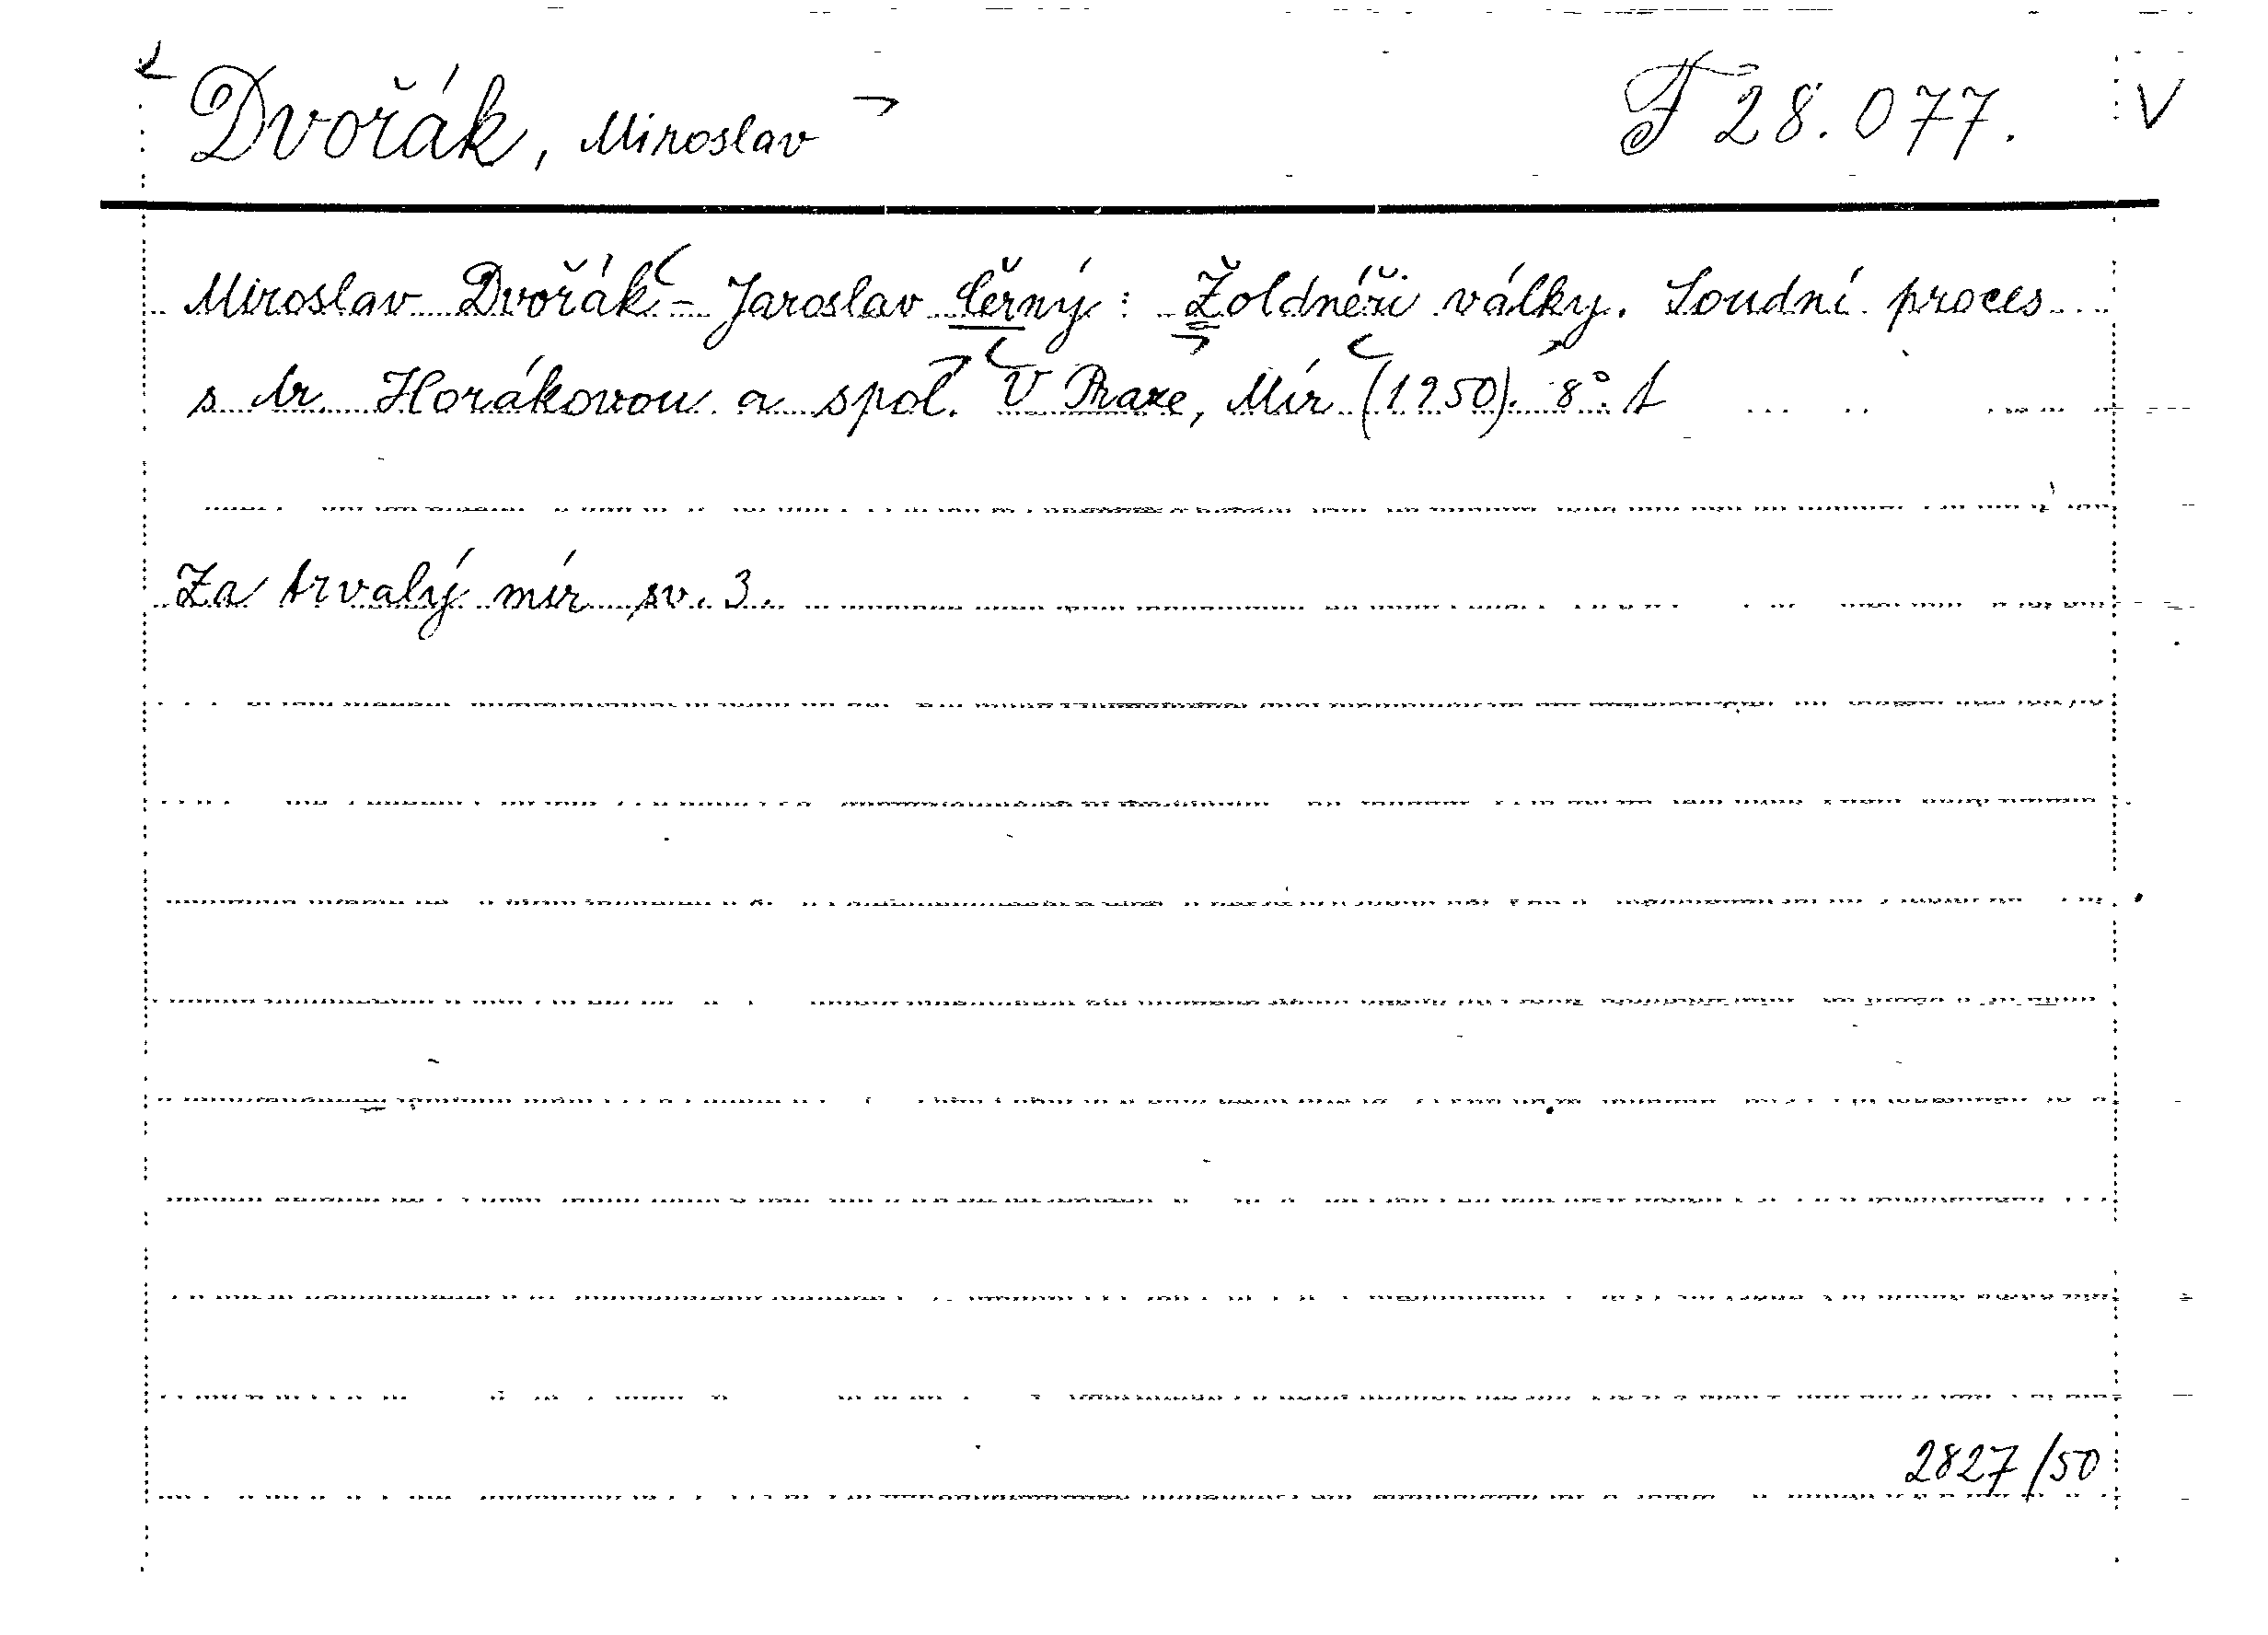 Dvořák, Miroslav F 28.077. V
Miroslav Dvořák - Jaroslav Černý: Žoldnéři války. Soudní proces
s dr. Horákovou a spol. V Praze, Mír (1950). 8°. t
Za trvalý mír sv. 3.
2827/50